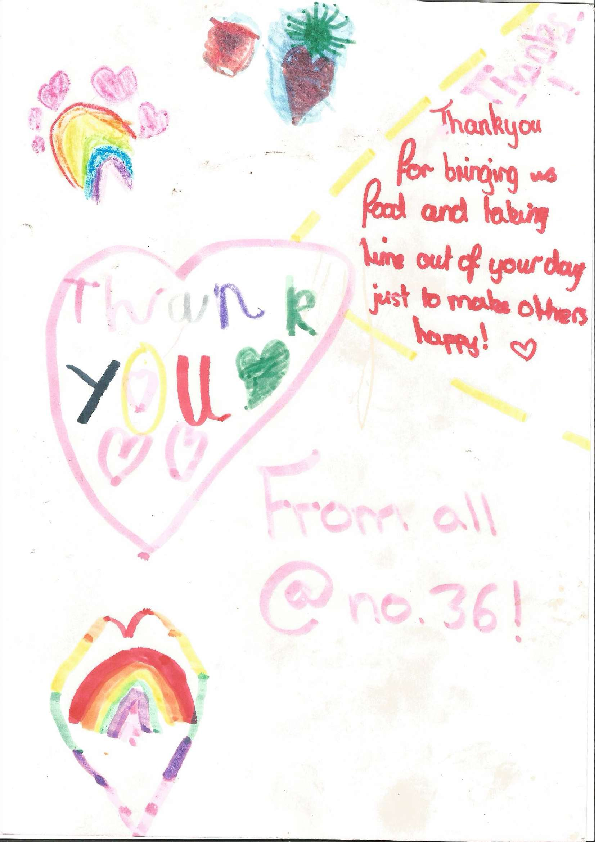 Thanks!
Thankyou
for bringing us
food and taking
time out of your day
just to make others
happy!
Thank
you
From all
@ no. 36!